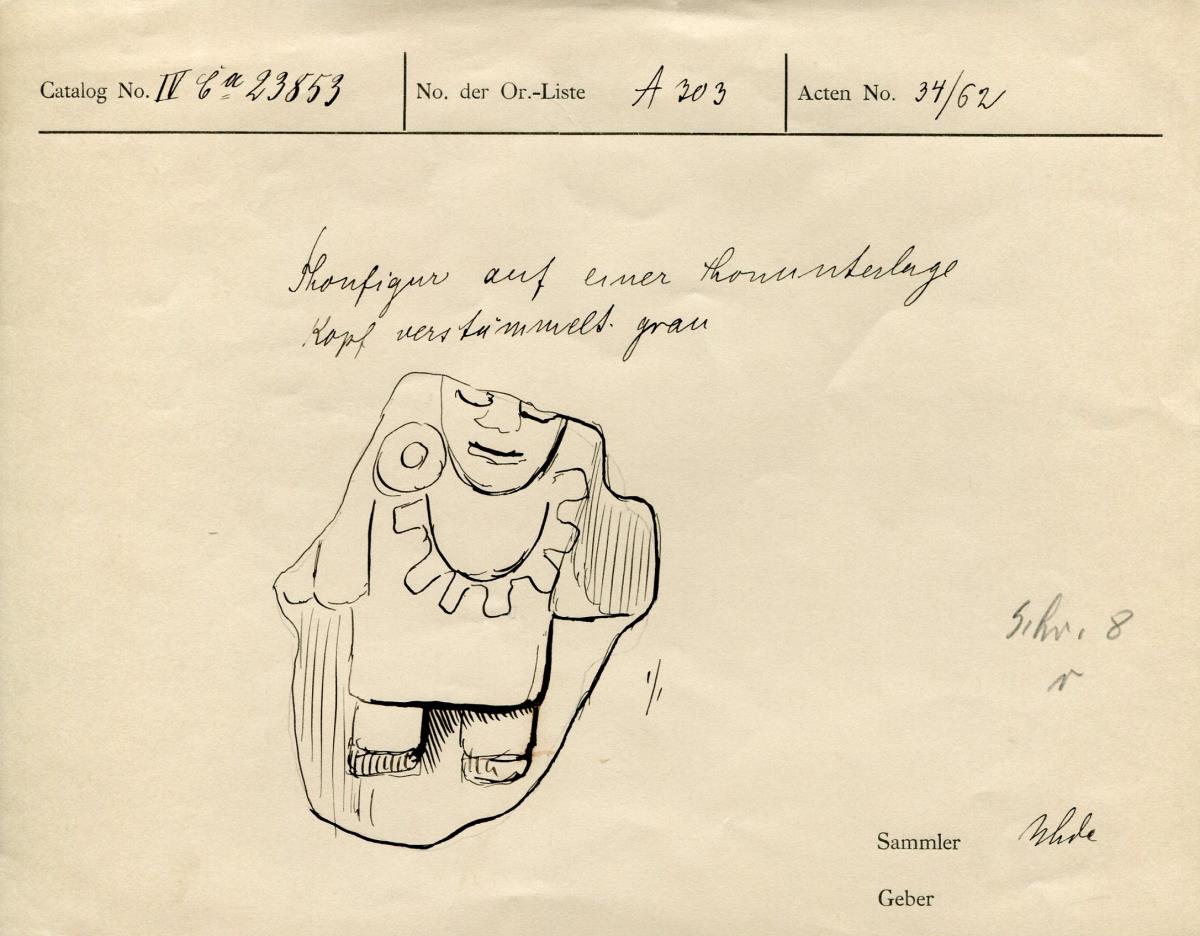 Catalog No. IV Ca 23853
No. der Or.-Liste A 303
Acten No. 34/62
Thonfigur auf einer Thonunterlage
Kopf verstümmelt. grau
1/1
Schr. 8
r
Sammler Uhde
Geber